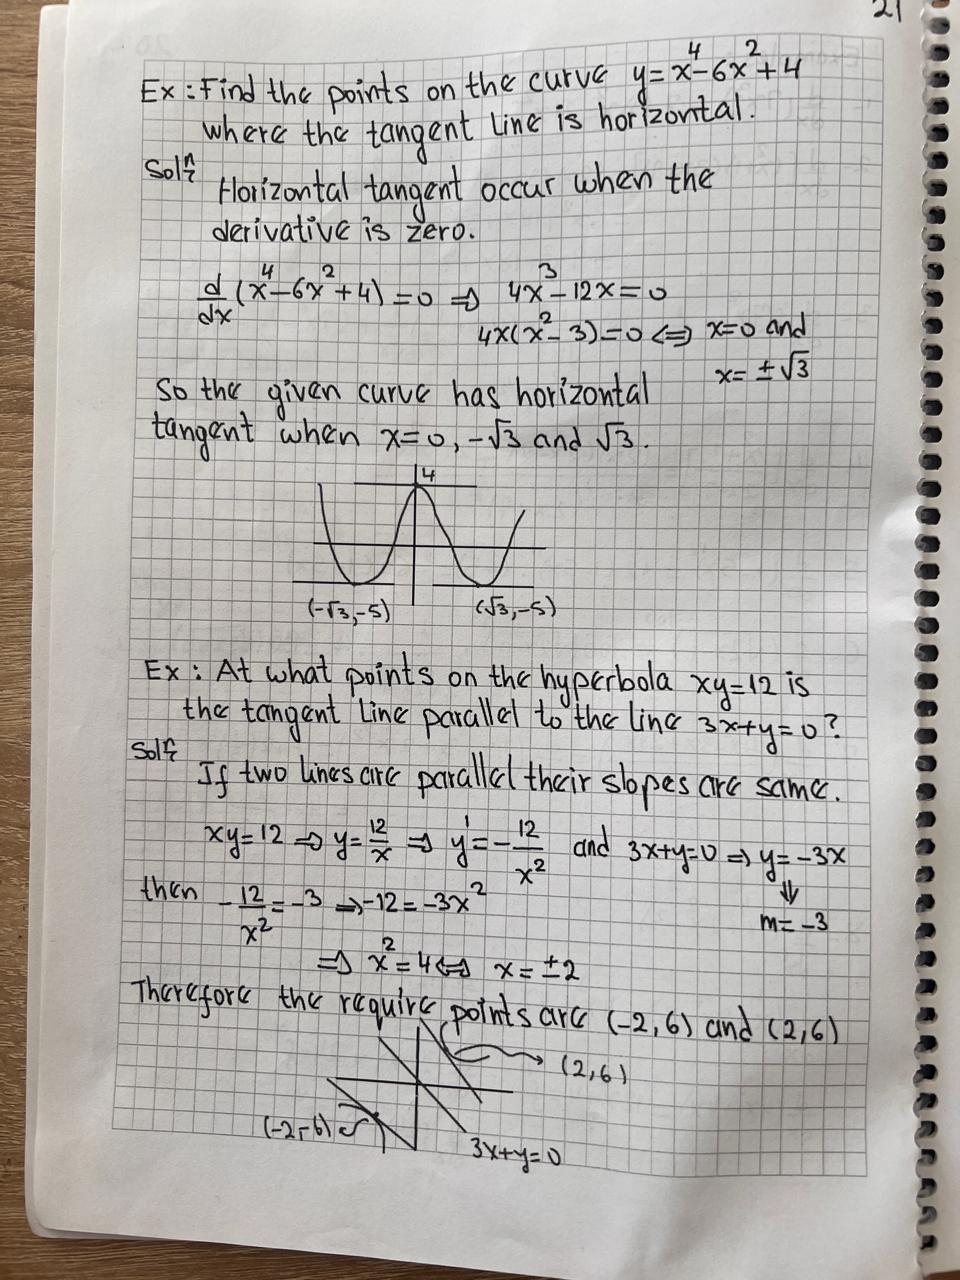 21
Ex: Find the points on the curve y = x⁴ - 6x² + 4
where the tangent line is horizontal.
Solⁿ:
Horizontal tangent occur when the
derivative is zero.
d/dx (x⁴ - 6x² + 4) = 0 ⇒ 4x³ - 12x = 0
4x(x² - 3) = 0 ⇔ x = 0 and
x = ±√3
So the given curve has horizontal
tangent when x = 0, -√3 and √3.
4
(-√3, -5) (√3, -5)
Ex: At what points on the hyperbola xy = 12 is
the tangent line parallel to the line 3x + y = 0?
Solⁿ:
If two lines are parallel their slopes are same.
xy = 12 ⇒ y = 12/x ⇒ y' = - 12/x² and 3x + y = 0 ⇒ y = -3x
⇓
then - 12/x² = -3 ⇒ -12 = -3x²
m = -3
⇒ x² = 4 ⇔ x = ±2
Therefore the require points are (-2, 6) and (2, 6)
(2, 6)
(-2, -6)
3x + y = 0